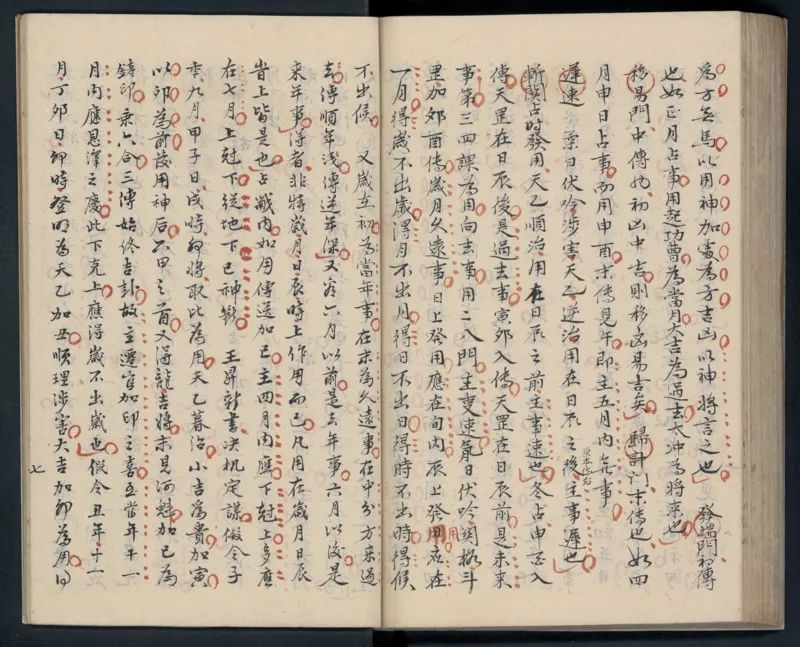 為方無馬以用神加處為方吉凶以神將言之也　發端門初傳
也如正月占事用起功曹為當月大吉為過去太冲為將來也
移易門中傳也初凶中吉則移凶易吉矣　歸計門末傳也如四
月申日占事而用申酉末傳見午即主五月內見事
遲速　柔日伏吟涉害天乙逆治用在日辰之後主事遲也
斬關占時發用天乙順治用在日辰之前主事速也冬占申巳入
傳天罡在日辰後是過去事寅卯入傳天罡在日辰前見未來
事第三四課為用向去事用二八門主更速剛日伏吟関格斗
罡加卯酉傳歲月久遠事日上發用應在旬內辰上發用應在
一月得歲不出歲得月不出月得日不出日得時不出時得候
不出候　又歲在初為當年事在末為久遠事在中分方來過
去傳順年淺傳逆年深又六月以前是去年事六月以後是
來年事得者非特歲月日辰時上作用而已凡用在歲月日辰
上皆是也占歲內如用傳送加巳主四月內應下尅上多應
在七月上尅下從地下巳神斷　王昇新書決機定謀假令子
年九月甲子日戌時卯將取此為用天乙暮治小吉為貴加寅
以卯為前發用神后不甲之首又得龍吉將末見河魁加巳為
鑄印乘六合三傳始終吉卦故主遷官加印之喜在當年十一
月內應恩澤之慶此下克上應得歲不出歲也假令丑年十一
月丁卯日卯時登明為天乙加丑順理涉害大吉加卯為用
七